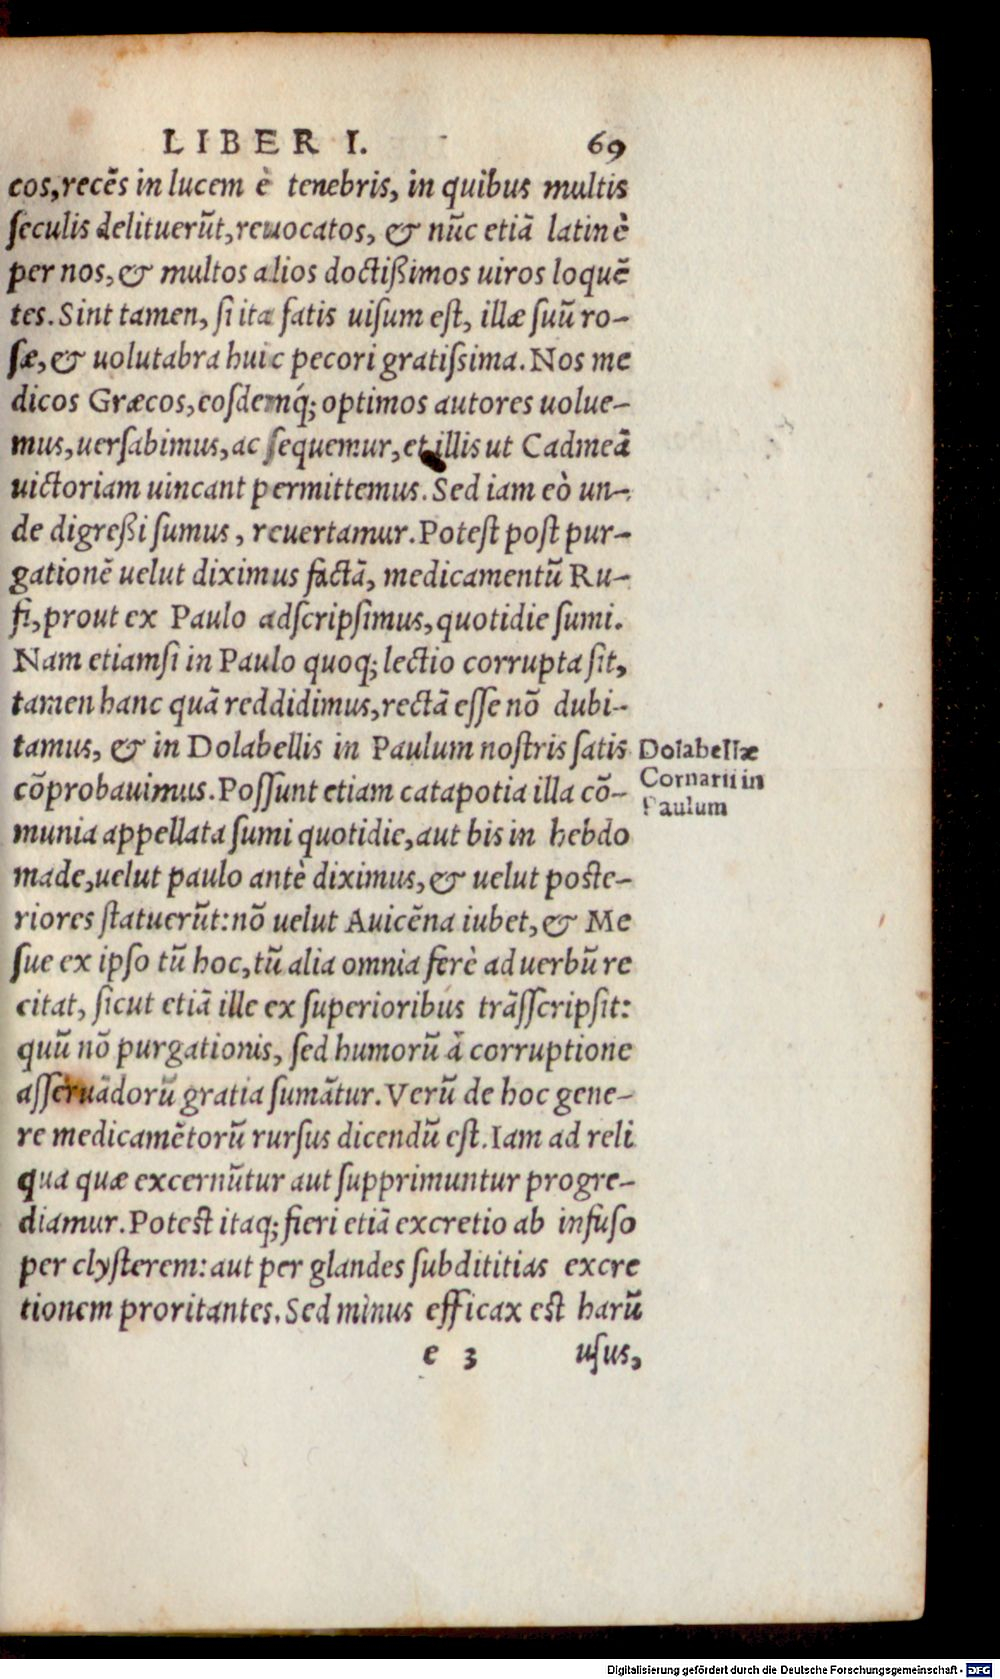 LIBER I. 69
cos, recẽs in lucem è tenebris, in quibus multis
seculis delituerũt, reuocatos, & nũc etiã latinè
per nos, & multos alios doctißimos uiros loquẽ
tes. Sint tamen, si ita fatis uisum est, illæ suũ ro-
sæ, & uolutabra huic pecori gratissima. Nos me
dicos Græcos, eosdemq́; optimos autores uolue-
mus, uersabimus, ac sequemur, et illis ut Cadmeã
uictoriam uincant permittemus. Sed iam eò un-
de digreßi sumus, reuertamur. Potest post pur-
gationẽ uelut diximus factã, medicamentũ Ru-
fi, prout ex Paulo adscripsimus, quotidie sumi.
Nam etiamsi in Paulo quoq; lectio corrupta sit,
tamen hanc quã reddidimus, rectã esse nõ dubi-
tamus, & in Dolabellis in Paulum nostris satis
cõprobauimus. Possunt etiam catapotia illa cõ-
munia appellata sumi quotidie, aut bis in hebdo
made, uelut paulo antè diximus, & uelut poste-
riores statuerũt: nõ uelut Auicẽna iubet, & Me
sue ex ipso tũ hoc, tũ alia omnia ferè ad uerbũ re
citat, sicut etiã ille ex superioribus trãsscripsit:
quũ nõ purgationis, sed humorũ à corruptione
asseruãdorũ gratia sumãtur. Verũ de hoc gene-
re medicamẽtorũ rursus dicendũ est. Iam ad reli
qua quæ excernũtur aut supprimuntur progre-
diamur. Potest itaq; fieri etiã excretio ab infuso
per clysterem: aut per glandes subdititias excre
tionem proritantes. Sed minus efficax est harũ
e 3 usus,
Dolabellæ
Cornarii in
Paulum
Digitalisierung gefördert durch die Deutsche Forschungsgemeinschaft - DFG